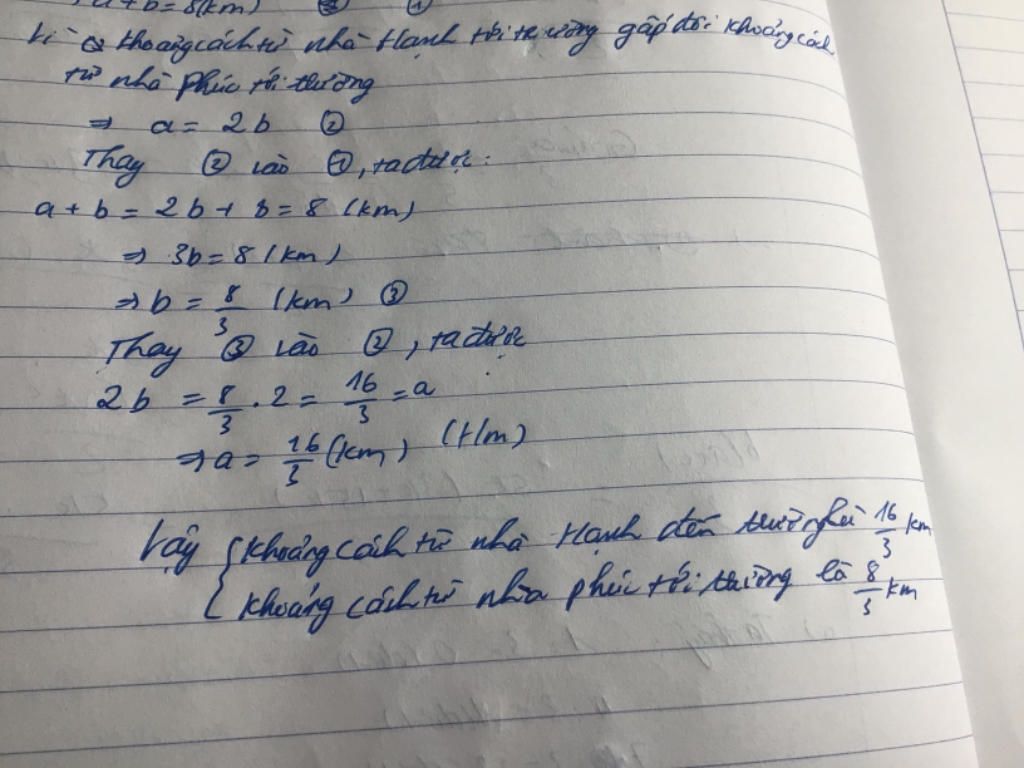 a+b = 8(km) ①
Vì khoảng cách từ nhà Hạnh tới trường gấp đôi khoảng cách
từ nhà Phúc tới trường
⇒ a = 2b ②
Thay ② vào ①, ta được:
a + b = 2b + b = 8 (km)
⇒ 3b = 8 (km)
⇒ b = 8/3 (km) ③
Thay ③ vào ②, ta được
2b = 8/3 . 2 = 16/3 = a
⇒ a = 16/3 (km) (t/m)
Vậy { khoảng cách từ nhà Hạnh đến trường là 16/3 km
khoảng cách từ nhà phúc tới trường là 8/3 km